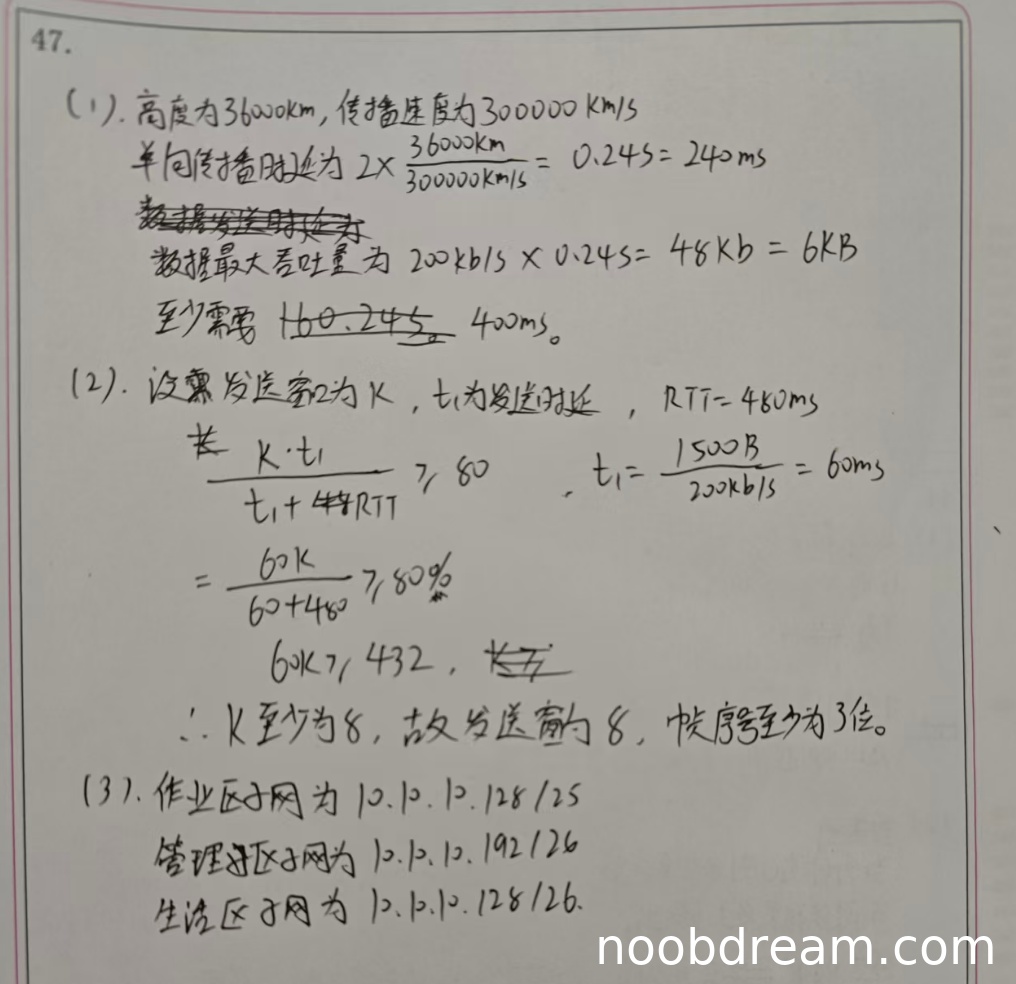 47.
(1). 高度为36000km, 传播速度为300000 km/s
单向传播时延为 2× 36000km / 300000km/s = 0.24s = 240ms
数据发送时延为
数据最大吞吐量为 200kb/s × 0.24s = 48Kb = 6KB
至少需要 160.24s。 400ms。
(2). 设需发送窗口为K, t₁为发送时延, RTT=480ms
长 K·t₁ / t₁+RTT ≥ 80 , t₁= 1500B / 200kb/s = 60ms
= 60K / 60+480 ≥ 80%
60K ≥ 432, K≥
∴ K至少为8, 故发送窗为8, 帧序号至少为3位。
(3). 作业区子网为 10.10.10.128/25
管理区子网为 10.10.10.192/26
生活区子网为 10.10.10.128/26.
noobdream.com